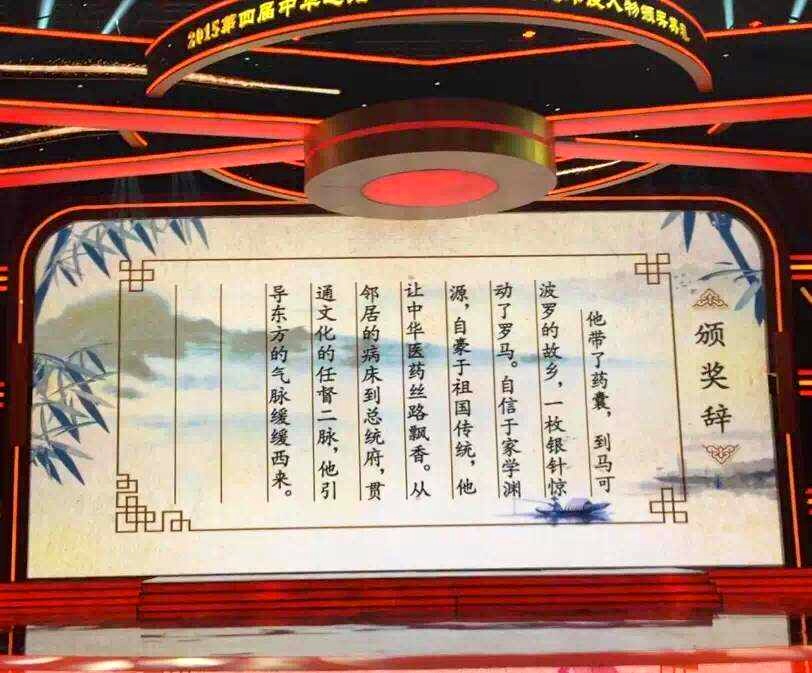 2015第四届中华之光
年度人物颁奖典礼
颁奖辞
他带了药囊，到马可
波罗的故乡，一枚银针惊
动了罗马。自信于家学渊
源，自豪于祖国传统，他
让中华医药丝路飘香。从
邻居的病床到总统府，贯
通文化的任督二脉，他引
导东方的气脉缓缓西来。